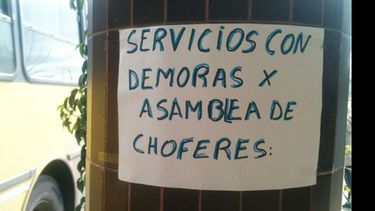 SERVICIOS CON
DEMORAS X
ASAMBLEA DE
CHOFERES: